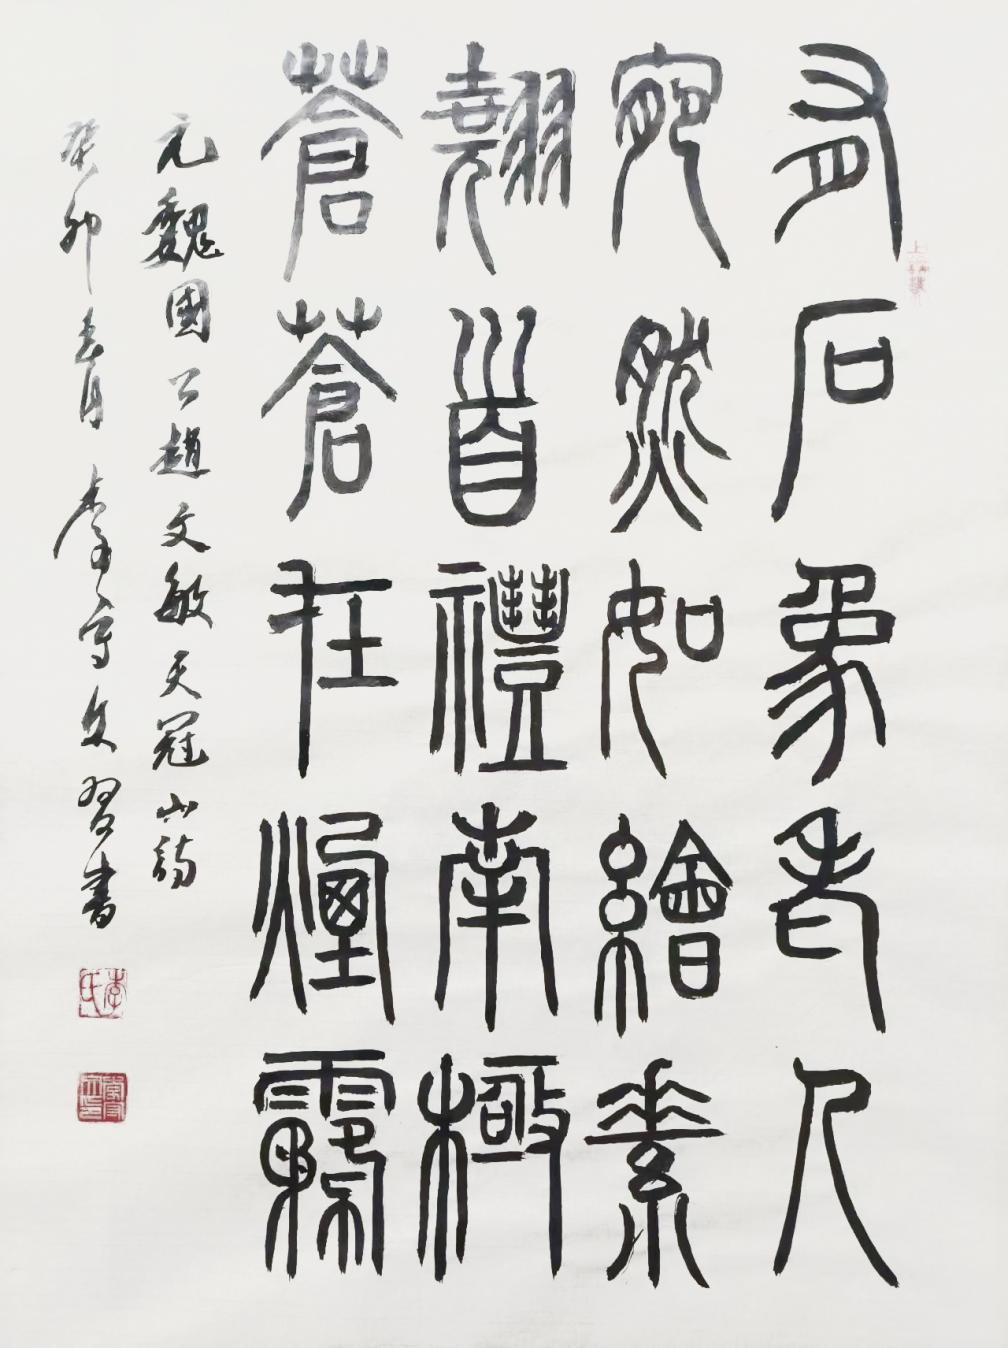 有石象老人
宛然如繪素
翹首禮南極
蒼蒼在煙霧
元魏國公趙文敏天冠山詩
癸卯春月李守文習書
李氏